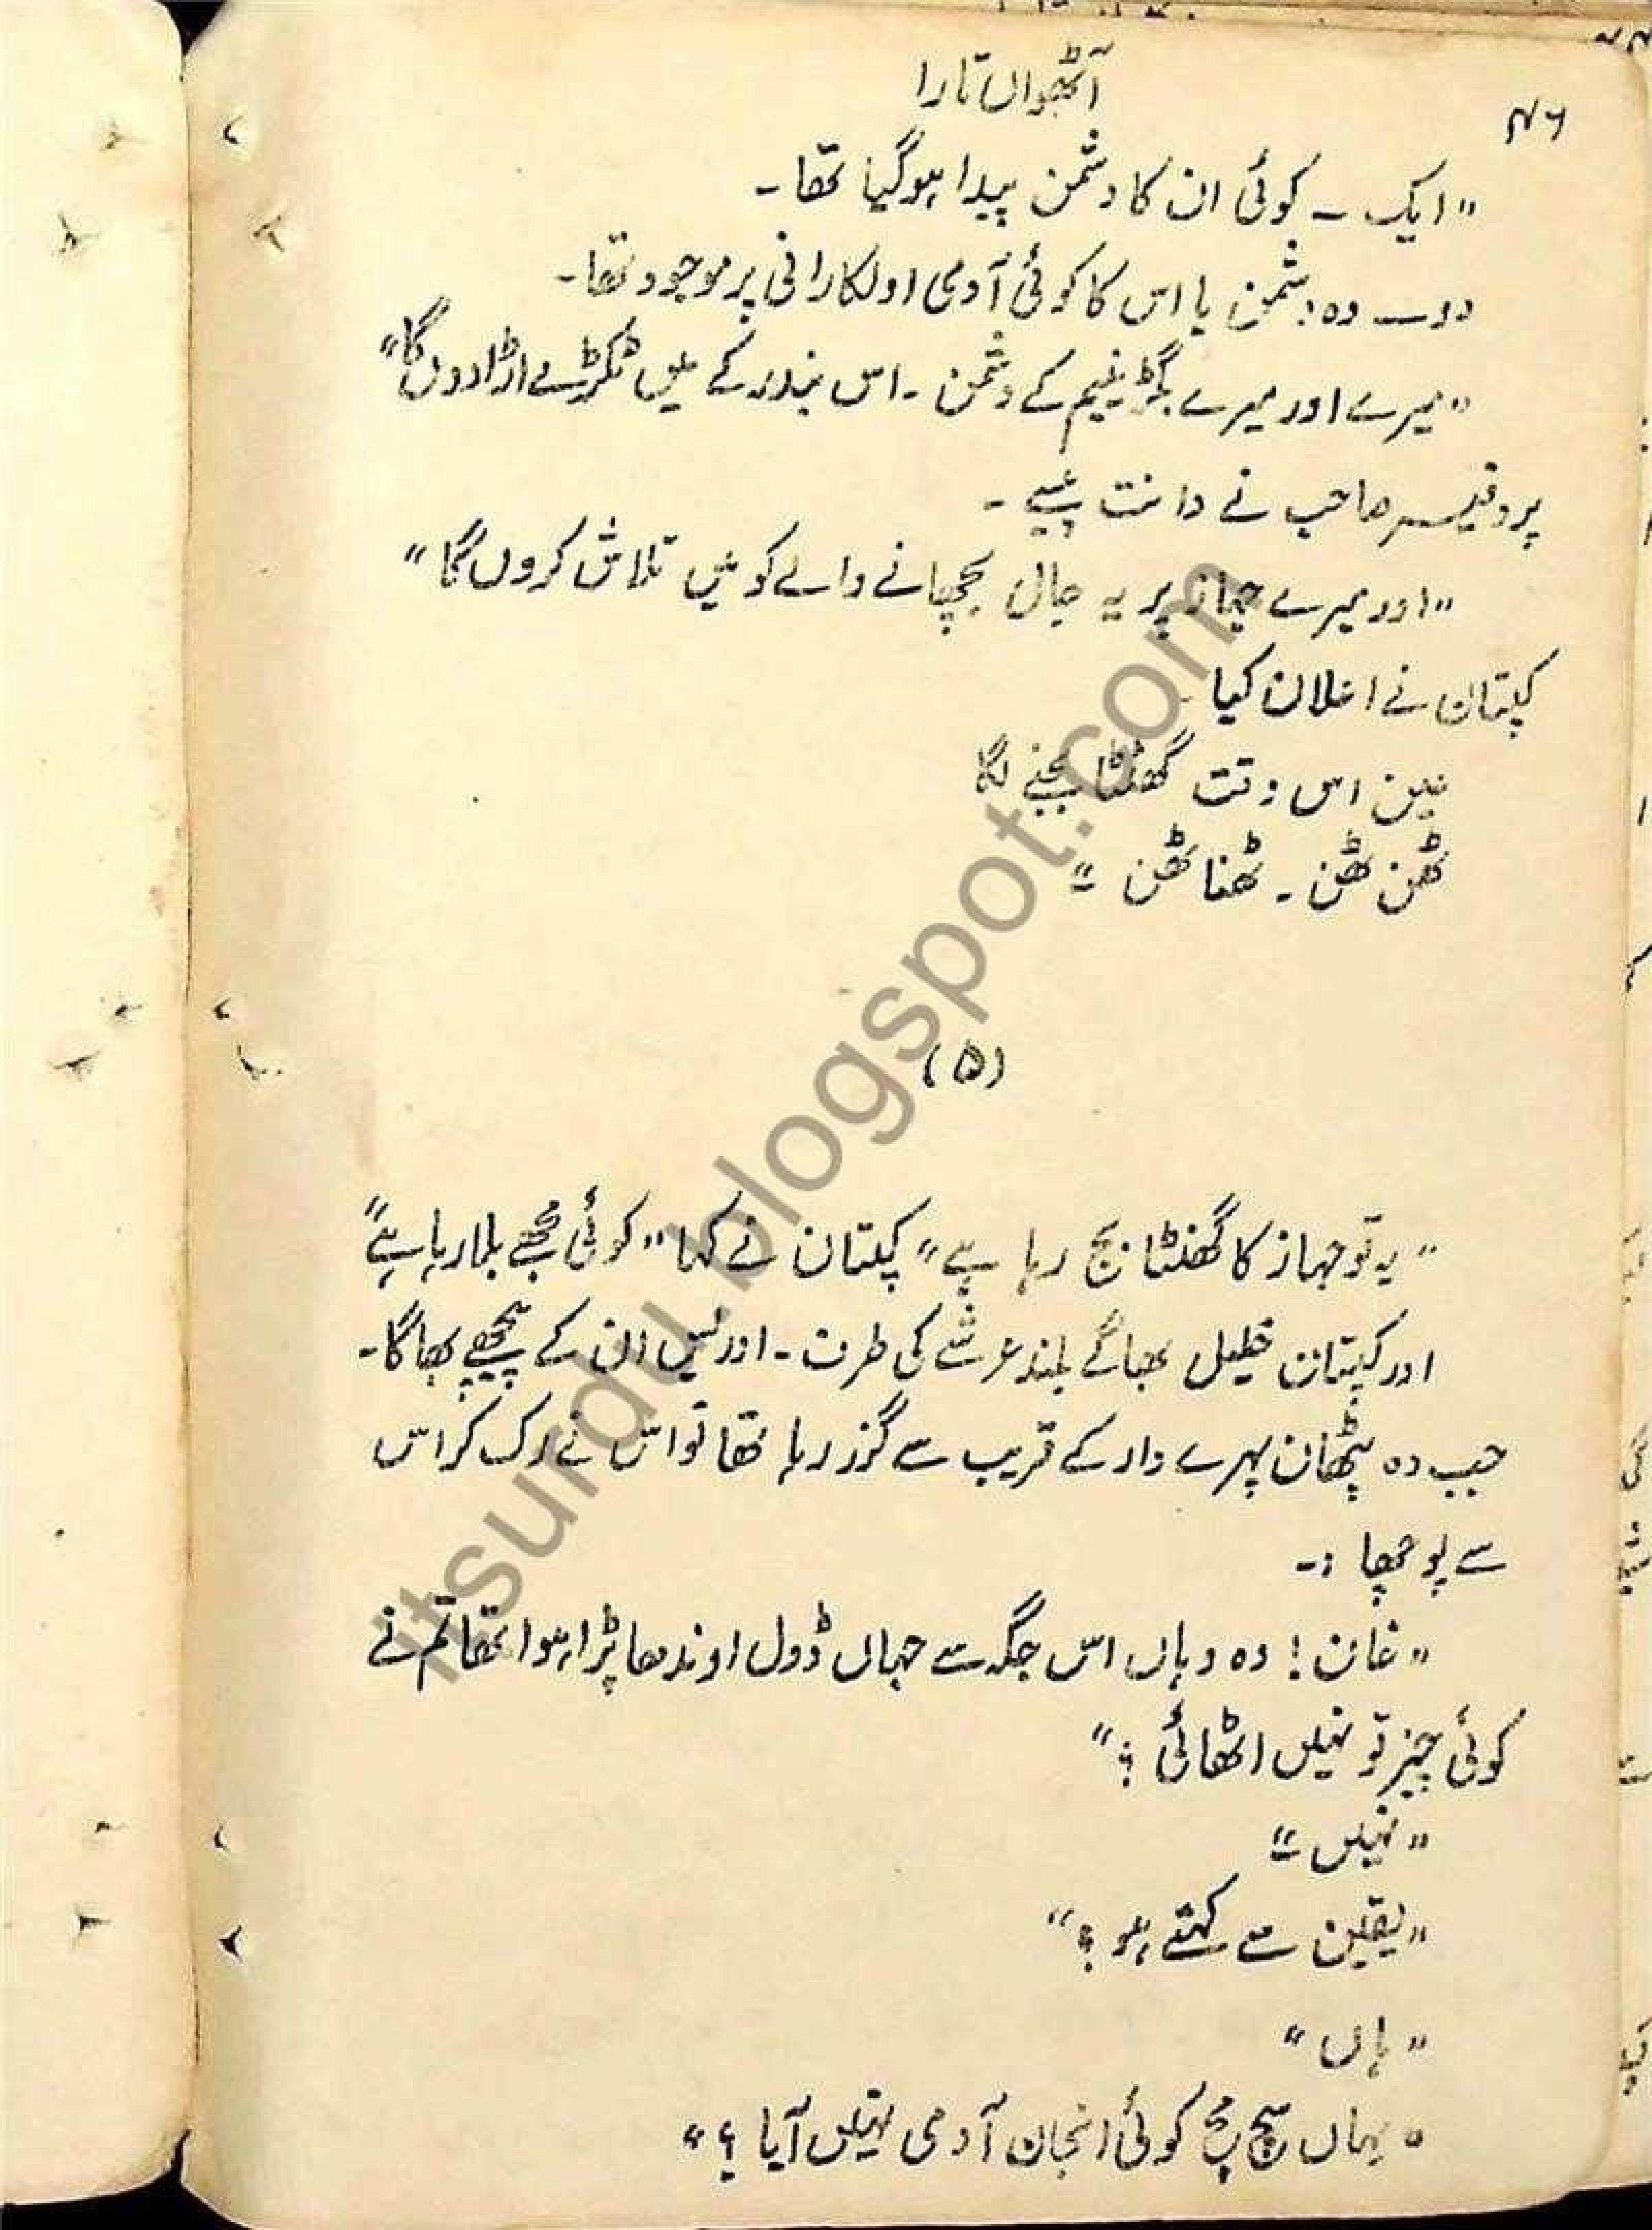 ۴۶
آٹھواں تارا
"ایک ۔ کوئی ان کا دشمن پیدا ہوگیا تھا۔
دو۔ وہ دشمن یا اس کا کوئی آدمی اولکارانی پر موجود تھا۔
"میرے اور میرے کے دشمن ۔ اس بندر کے میں ٹکڑے اڑا دوں گا"
پروفیسر صاحب نے دانت پیسے ۔
"اور میرے جہاز پر یہ جال بچھانے والے کو میں تلاش کروں گا"
کپتان نے اعلان کیا ۔
عین اس وقت گھنٹا بجنے لگا
ٹھن ٹھن ۔ ٹھنا ٹھن ۔"
(۵)
"یہ تو جہاز کا گھنٹا بج رہا ہے" کپتان نے کہا "کوئی مجھے بلا رہا ہے"
اور کپتان خلیل بھاگے بلند عرشے کی طرف ۔ اور میں ان کے پیچھے بھاگا۔
جب وہ پٹھان پہرے دار کے قریب سے گزر رہا تھا تو اس نے رک کر اس
سے پوچھا :۔
"خان! وہ وہاں اس جگہ سے جہاں ڈول اوندھا پڑا ہوا تھا تم نے
کوئی چیز تو نہیں اٹھائی ؟"
"نہیں ۔"
"یقین سے کہتے ہو ؟"
"ہاں"
"یہاں سچ مچ کوئی انجان آدمی نہیں آیا ؟"
itsurdu.blogspot.com